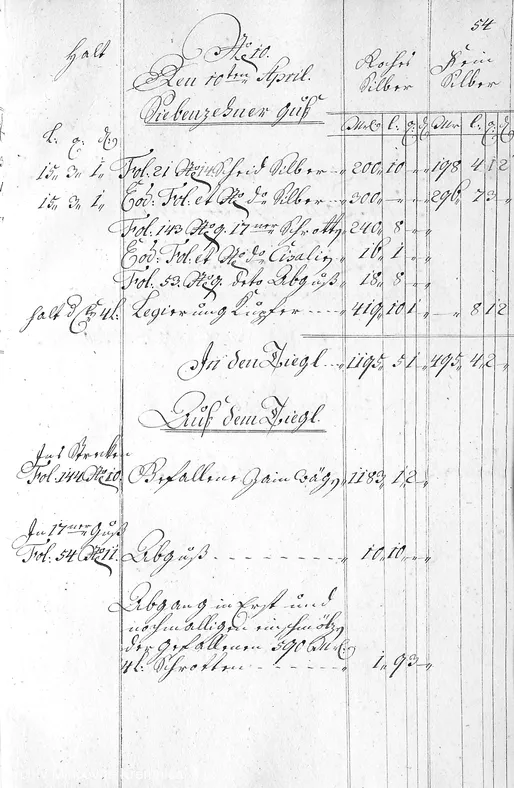 54
Halt
No 10.
Den 10ten April.
Siebenzehner Guß
Roches Silber
Fein Silber
l: q: d:
Mrk: l: q: d: Mr l: q: d:
15 3 1 Fol. 21 No 14 Scheid Silber 200 10 198 4 1 2
15 3 1 Eod: Fol. et No do Silber 300 296 7 3
Fol. 143 No 9. 17ner Schrott 240 8
Eod: Fol. et No do Cisalie 16 1
Fol. 53. No 9. deto Abguß 18 8
halt d 4 l. Legierung Kupfer 419 10 1 8 1 2
In den Tiegl 1195 5 1 495 4 2
Auß dem Tiegl.
Ins Strecken
Fol. 144 No 10. Gefallene Zain 1183 1 2
In 17ner Guß
Fol. 54 No 11. Abguß 10 10
Abgang in Erst und
nochmalligen einschmölz
der gefallenen 590 Mrk:
4 l: Schrotten 1 9 3